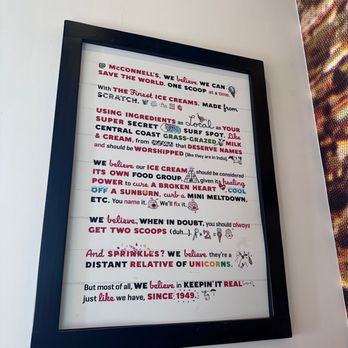 @ McCONNELL'S, WE believe WE CAN
SAVE THE WORLD. ONE SCOOP at a time.
With THE Finest ICE CREAMS. MADE from
SCRATCH.
USING INGREDIENTS as Local as YOUR
SUPER SECRET SURF SPOT. Like
CENTRAL COAST GRASS-GRAZED MILK
& CREAM, from COWS that DESERVE NAMES
and should be WORSHIPPED (like they are in India)
WE believe our ICE CREAM should be considered
ITS OWN FOOD GROUP, given its healing
POWER to cure A BROKEN HEART, COOL
OFF A SUNBURN, curb a MINI MELTDOWN,
ETC. You name it. We'll fix it.
WE believe, WHEN IN DOUBT, you should always
GET TWO SCOOPS (duh...).
And SPRINKLES? WE believe they're a
DISTANT RELATIVE OF UNICORNS.
But most of all, WE believe in KEEPIN' IT REAL
just like we have, SINCE 1949.